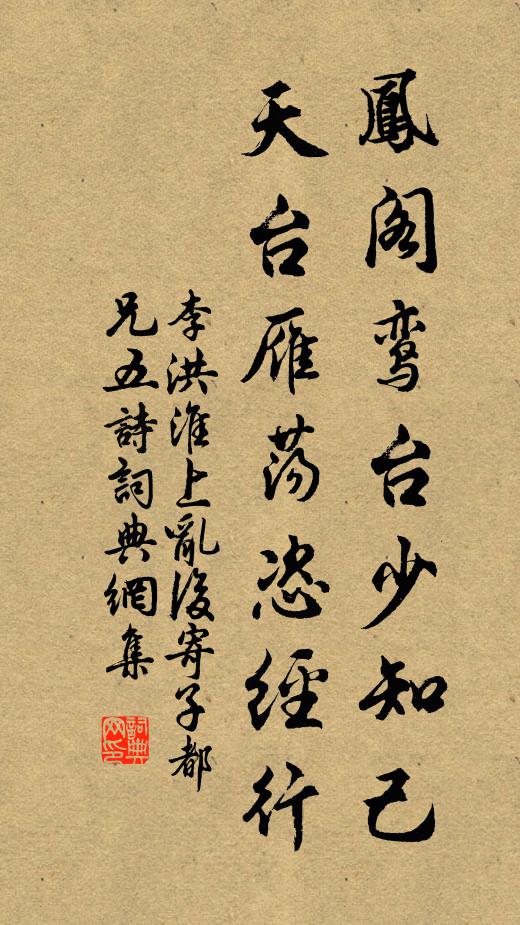 鳳阁鸾台少知己
天台雁荡恣經行
李洪淮上亂後寄子都
兄五詩詞典網集
詞典網印